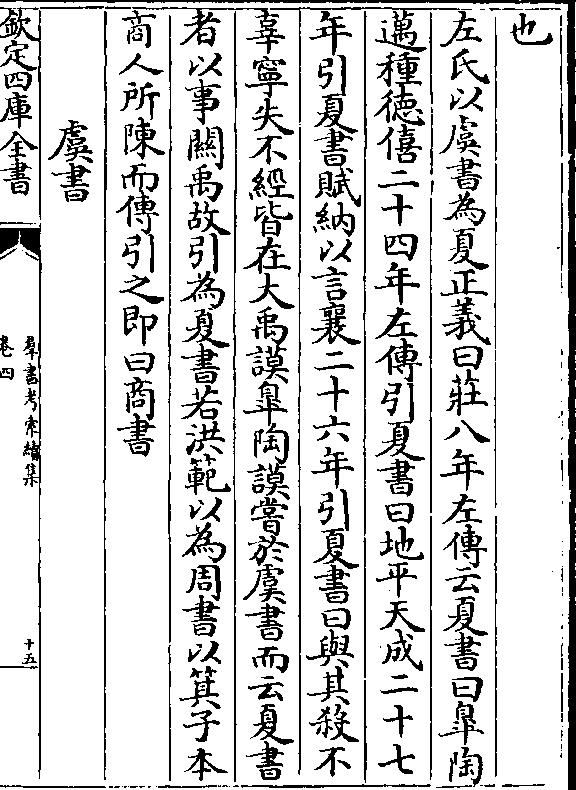 也
左氏以虞書為夏正義曰莊八年左傳云夏書曰臯陶
邁種徳僖二十四年左傳引夏書曰地平天成二十七
年引夏書賦納以言襄二十六年引夏書曰與其殺不
辜寧失不經皆在大禹謨臯陶謨當於虞書而云夏書
者以事闗禹故引為夏書若洪範以為周書以箕子本
商人所陳而傳引之即曰商書
虞書
欽定四庫全書
羣書考索續集
卷四
十五